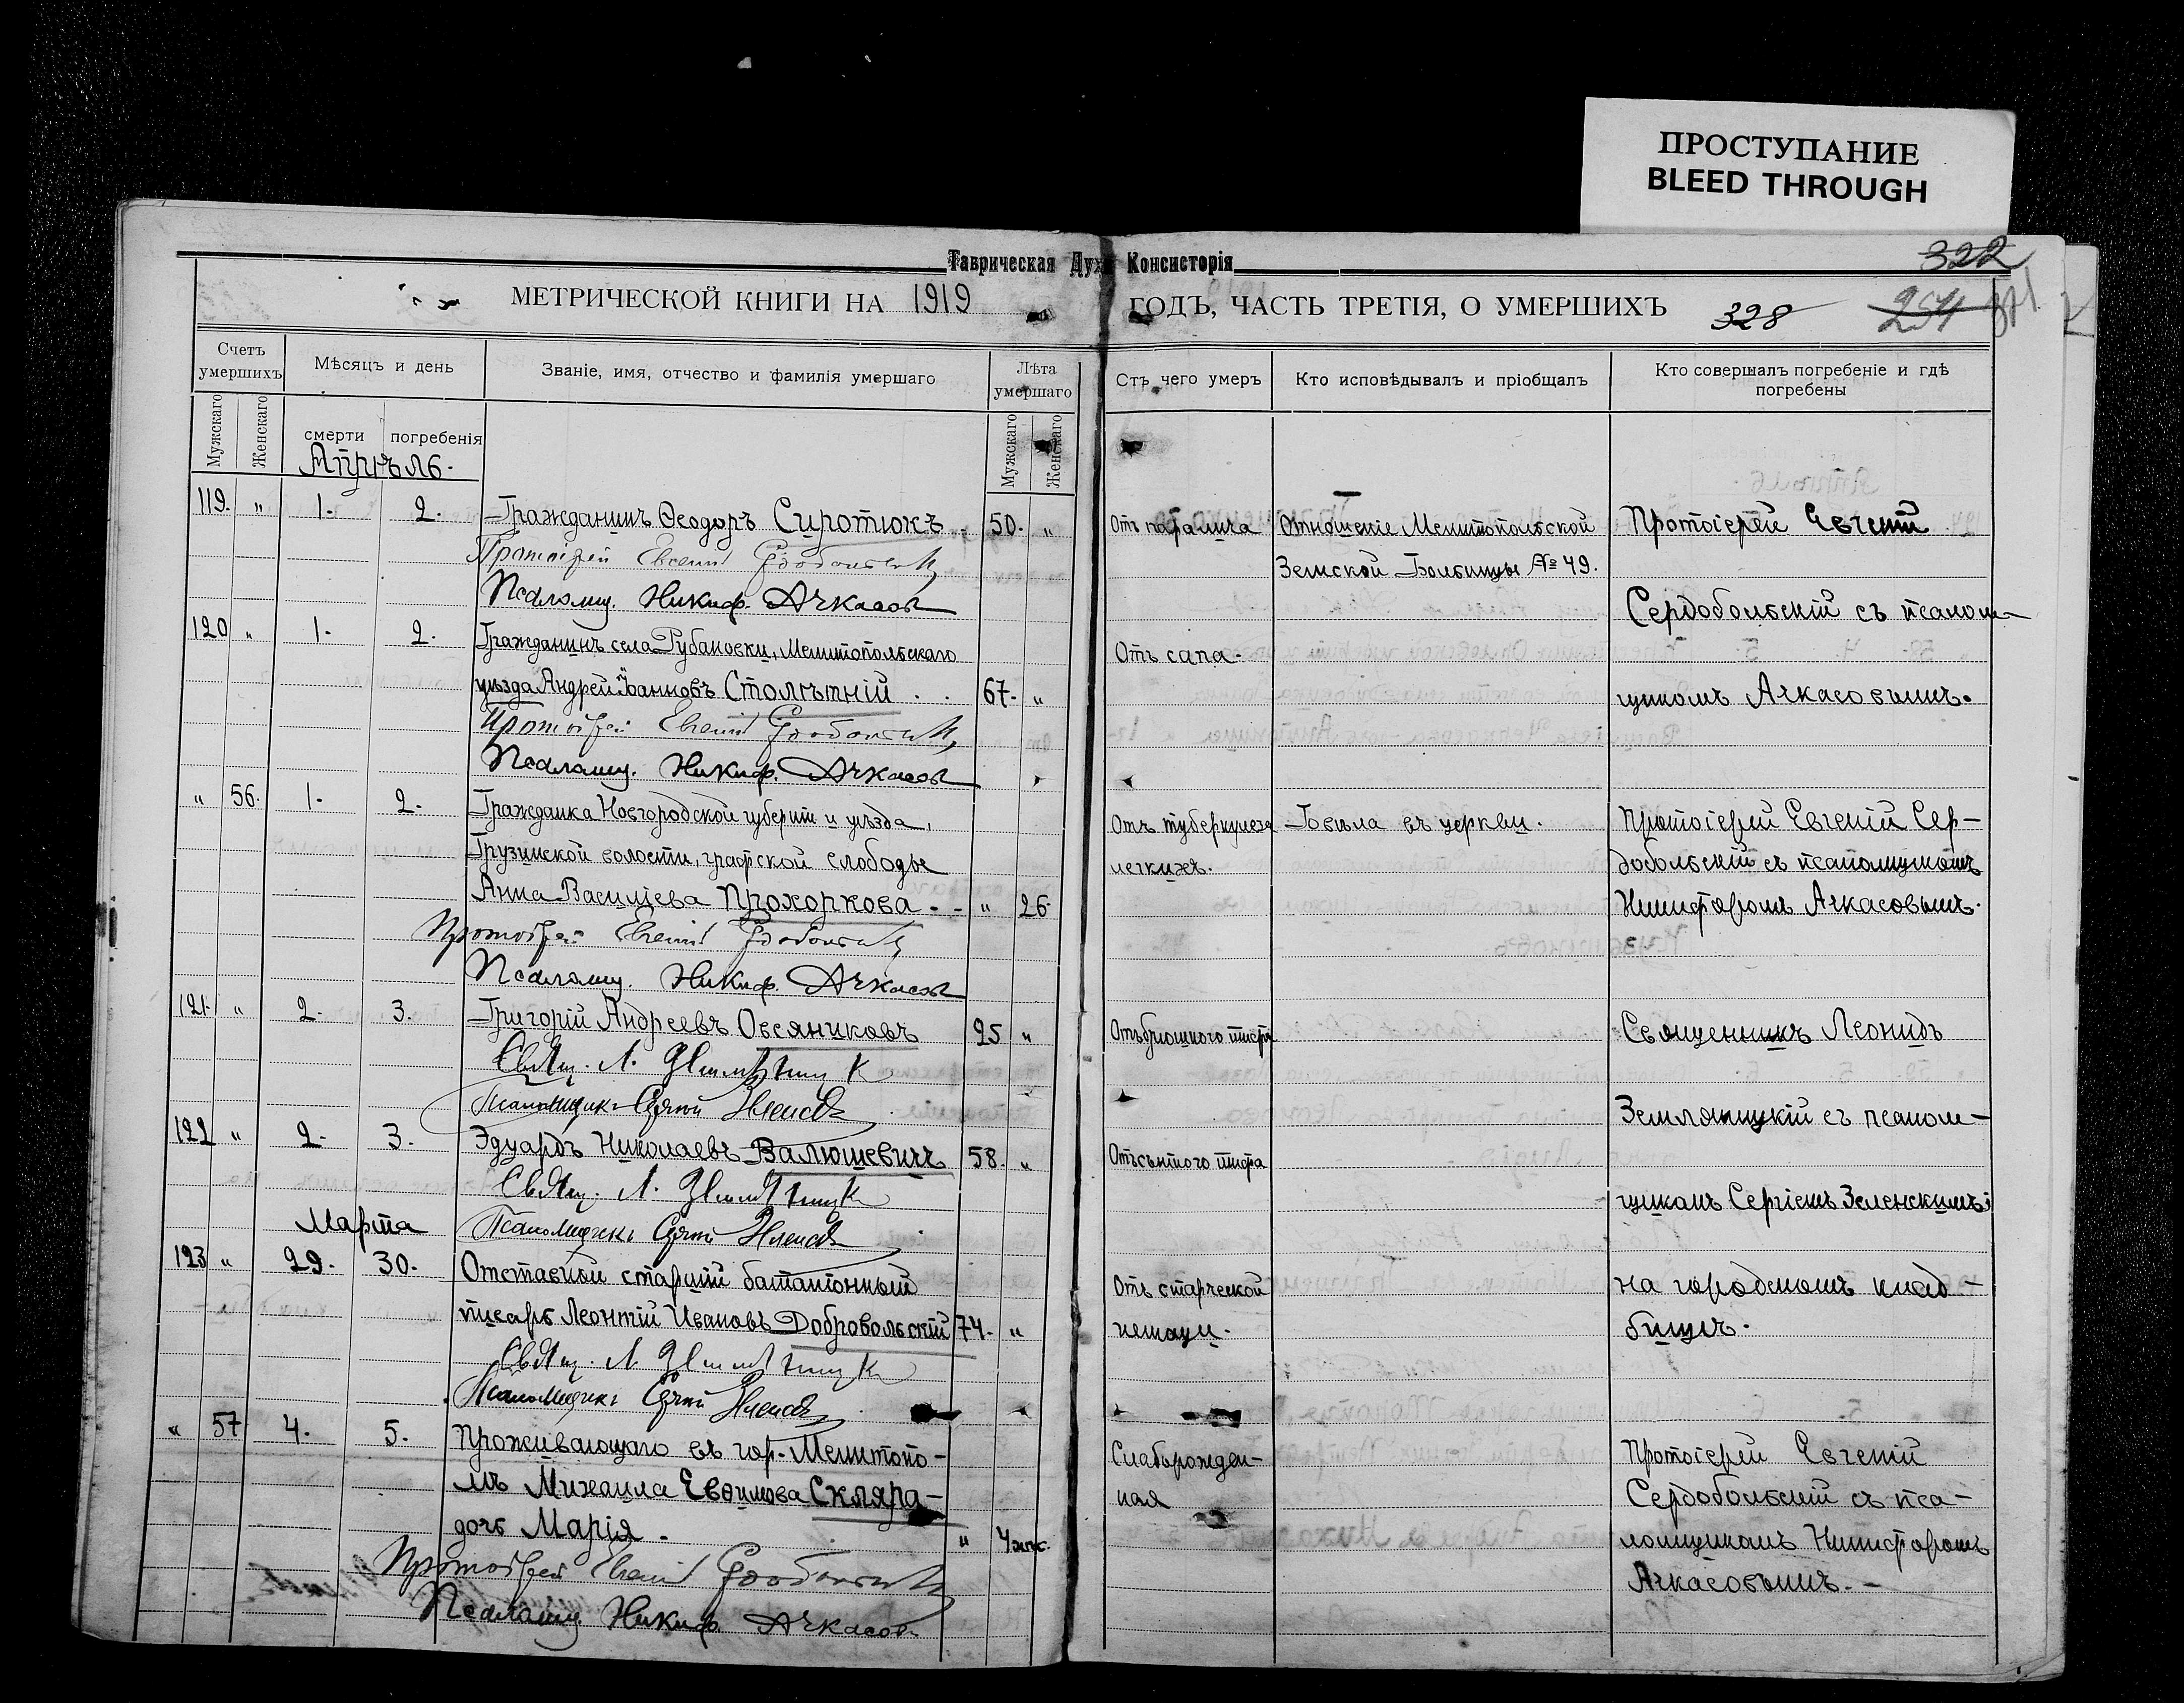 ПРОСТУПАНИЕ
BLEED THROUGH
Таврическая Дух. Консисторія
322
МЕТРИЧЕСКОЙ КНИГИ НА 1919 ГОДЪ, ЧАСТЬ ТРЕТІЯ, О УМЕРШИХЪ
328 254
Счетъ умершихъ
Мѣсяцъ и день
Званіе, имя, отчество и фамилія умершаго
Лѣта умершаго
Отъ чего умеръ
Кто исповѣдывалъ и пріобщалъ
Кто совершалъ погребеніе и гдѣ погребены
Мужскаго Женскаго смерти погребенія Мужскаго Женскаго
Апрѣль.
119. " 1. 2. Гражданинъ Ѳеодоръ Сиротюкъ - 50. " Отъ паралича Отношеніе Мелитопольской Протоіерей Евгеній
Протоіерей Евгеній Сердобольскій Земской Больницы № 49.
Псаломщ. Никиф. Ачкасовъ Сердобольскій съ псалом-
120 " 1. 2. Гражданинъ села Рубановки, Мелитопольскаго Отъ сапа.
уѣзда Андрей Іоанновъ Столѣтній . . 67. " щикомъ Ачкасовымъ.
Протоіерей Евгеній Сердобольскій
Псаломщ. Никиф. Ачкасовъ
" 56. 1. 2. Гражданка Новгородской губерніи и уѣзда, Отъ туберкулеза Была въ церкви. Протоіерей Евгеній Сер-
Грузинской волости, графской слободы легкихъ. добольскій съ псаломщикомъ
Анна Василіева Прохоркова - - " 26 Никифоромъ Ачкасовымъ.
Протоіерей Евгеній Сердобольскій
Псаломщ. Никиф. Ачкасовъ
121. " 2. 3. Григорій Андреевъ Овсяниковъ 25 " Отъ брюшного тифа Священникъ Леонидъ
Свящ. Л. Земляницкій
Псаломщикъ Сергій Зеленскій Земляницкій съ псалом-
122 " 2. 3. Эдуардъ Николаевъ Валюшевичъ 58. " Отъ сыпного тифа
Свящ. Л. Земляницкій щикомъ Сергіемъ Зеленскимъ;
Марта Псаломщикъ Сергій Зеленскій
123 " 29. 30. Отставной старшій баталіонный Отъ старческой на городскомъ клад-
писарь Леонтій Ивановъ Добровольскій 74. " немощи. бищѣ.
Свящ. Л. Земляницкій
Псаломщикъ Сергій Зеленскій
" 57 4. 5. Проживающаго въ гор. Мелитопо- Слаборожден- Протоіерей Евгеній
лѣ Михаила Евѳимова Скляра- ная Сердобольскій съ пса-
дочь Марія. " 4 мѣс. ломщикомъ Никифоромъ
Протоіерей Евгеній Сердобольскій Ачкасовымъ. -
Псаломщ. Никиф. Ачкасовъ